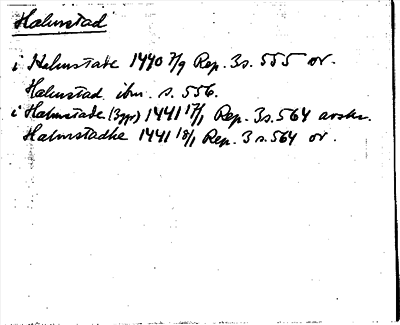 Halmstad
i Halmstade 1440 7/9 Rep. 3 s. 555 or.
Halmstad ibm. s. 556.
i Halmstade (3ggr) 1441 17/1 Rep. 3 s. 564 avskr.
Halmstadhe 1441 18/1 Rep. 3 s. 564 or.